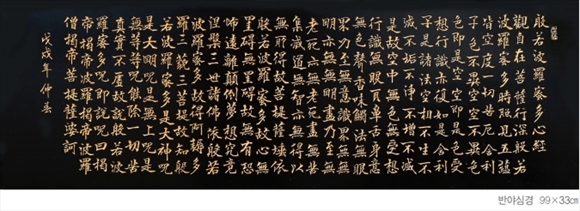 般若波羅蜜多心經
觀自在菩薩行深般若
波羅蜜多時照見五蘊
皆空度一切苦厄舍利
子色不異空空不異色
色卽是空空卽是色受
想行識亦復如是舍利
子是諸法空相不生不
滅不垢不淨不增不減
是故空中無色無受想
行識無眼耳鼻舌身意
無色聲香味觸法無眼
界乃至無意識界無無
明亦無無明盡乃至無
老死亦無老死盡無苦
集滅道無智亦無得以
無所得故菩提薩埵依
般若波羅蜜多故心無
罣碍無罣碍故無有恐
怖遠離顚倒夢想究竟
涅槃三世諸佛依般若
波羅蜜多故得阿耨多
羅三藐三菩提故知般
若波羅蜜多是大神呪
是大明呪是無上呪是
無等等呪能除一切苦
眞實不虛故說般若波
羅蜜多呪卽說呪曰揭
帝揭帝波羅揭帝波羅
僧揭帝菩提薩婆訶
戊戌年 仲
반야심경 99×33㎝